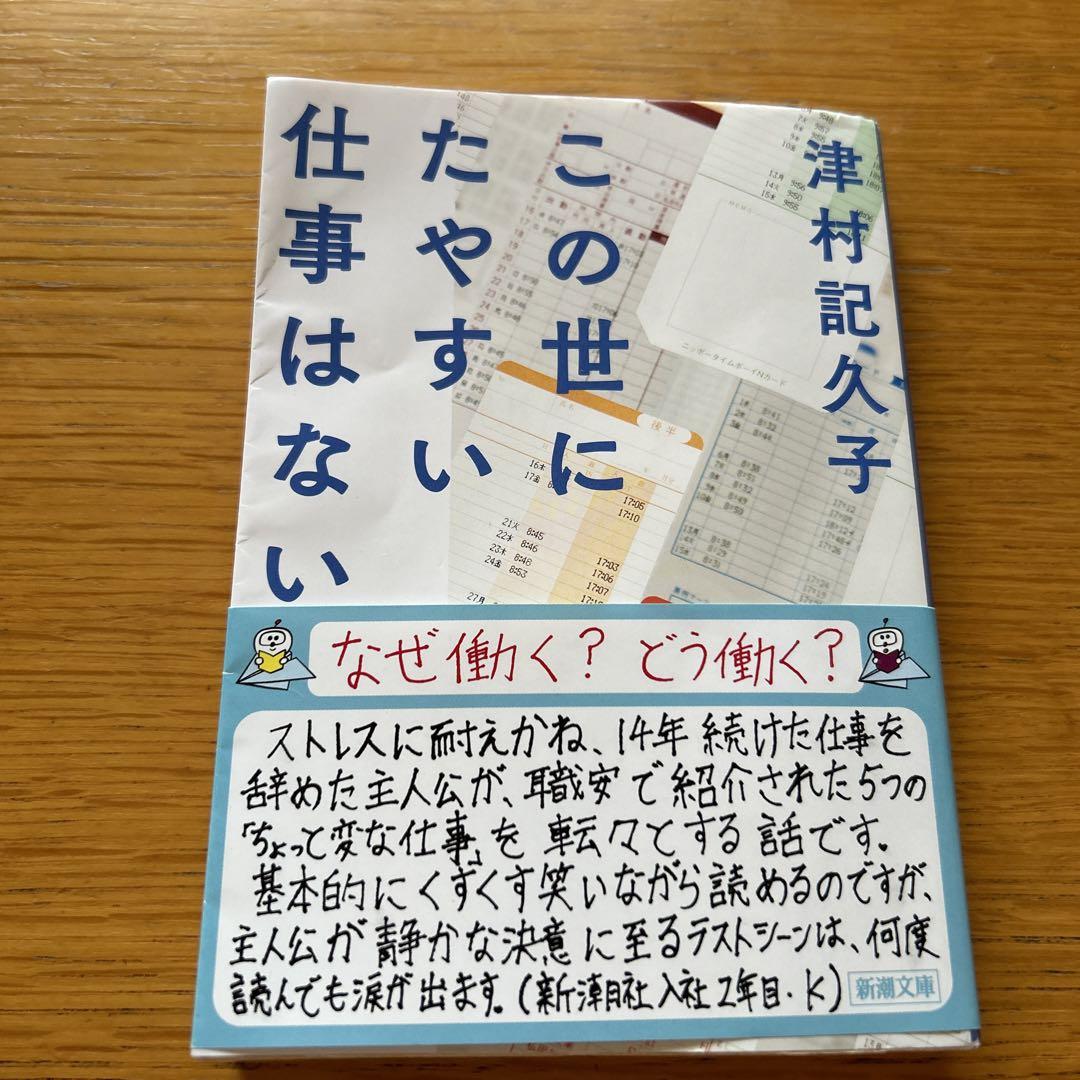 津村記久子
この世に
たやすい
仕事はない
ニッポータイムボーイNカード
後半
16木
17金
17:05
17:10
21火 8:45
22水 8:46
23木 8:46 17:03
24金 8:53 17:06
17:07
27月
なぜ働く？ どう働く？
ストレスに耐えかね、14年続けた仕事を
辞めた主人公が、職安で紹介された5つの
「ちょっと変な仕事」を転々とする話です。
基本的にくすくす笑いながら読めるのですが、
主人公が静かな決意に至るラストシーンは、何度
読んでも涙が出ます。(新潮社入社2年目・K)
新潮文庫